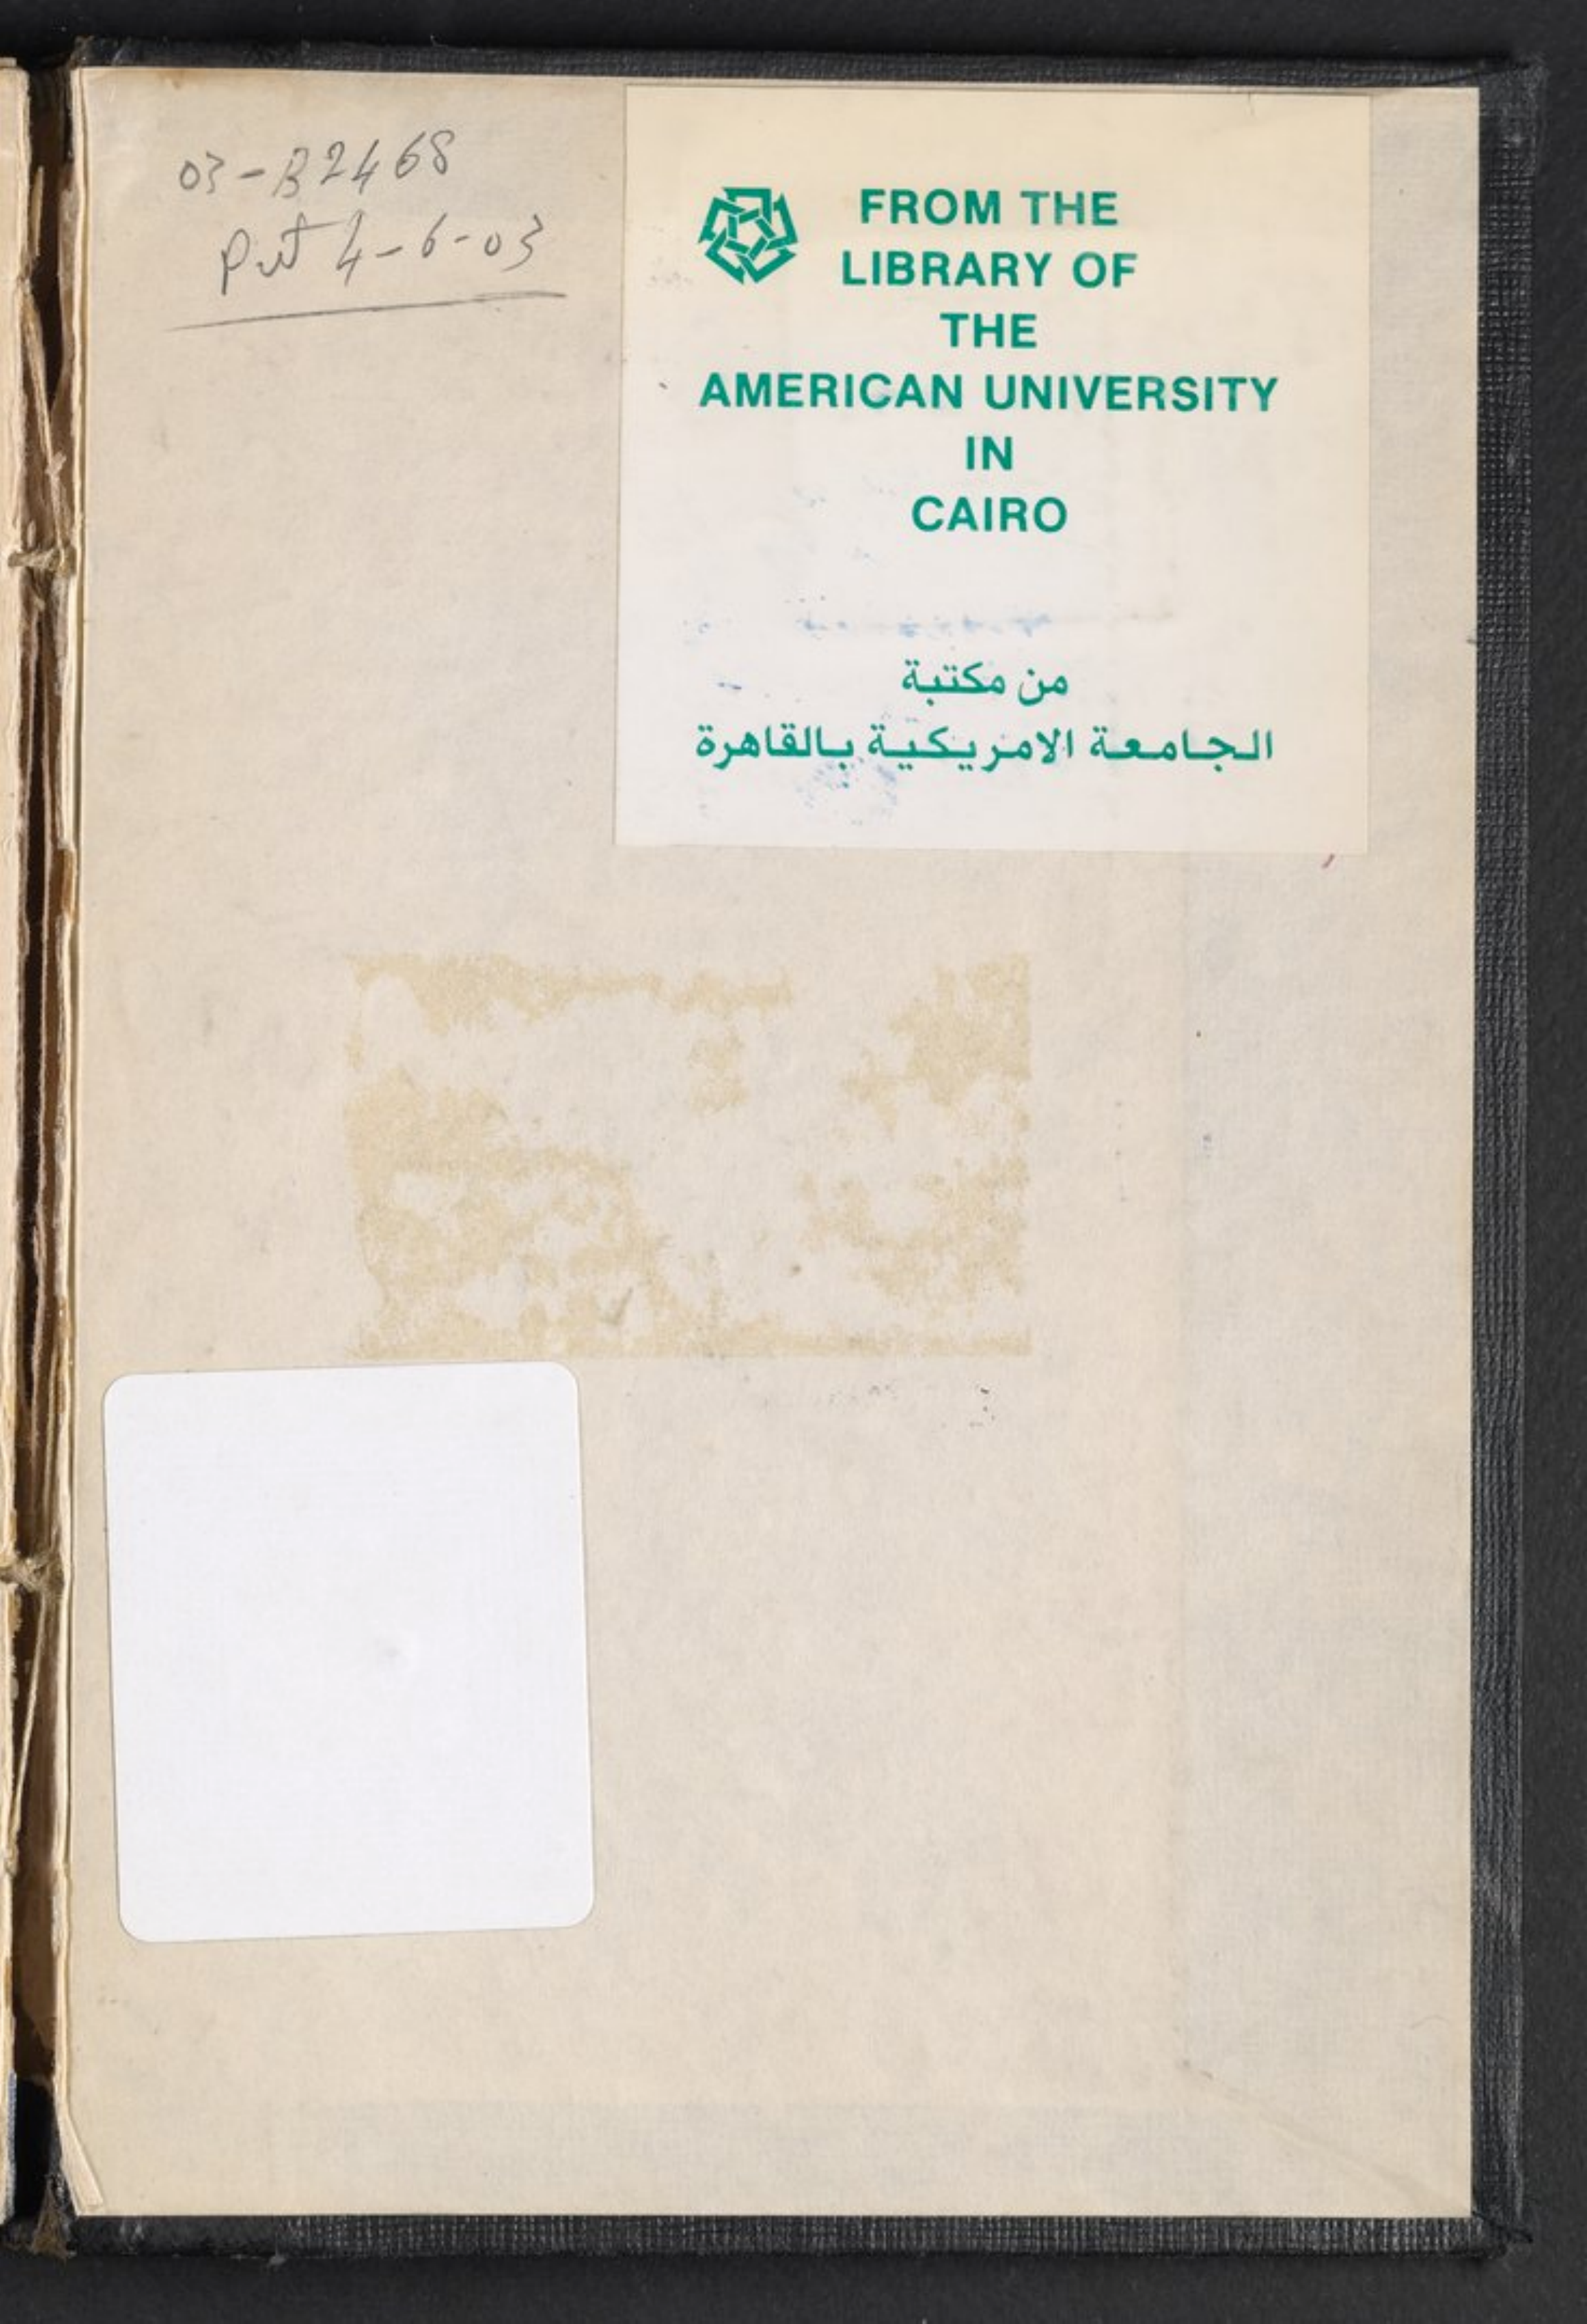 03-B2468
4-6-03
FROM THE
LIBRARY OF
THE
AMERICAN UNIVERSITY
IN
CAIRO
من مكتبة
الجامعة الامريكية بالقاهرة